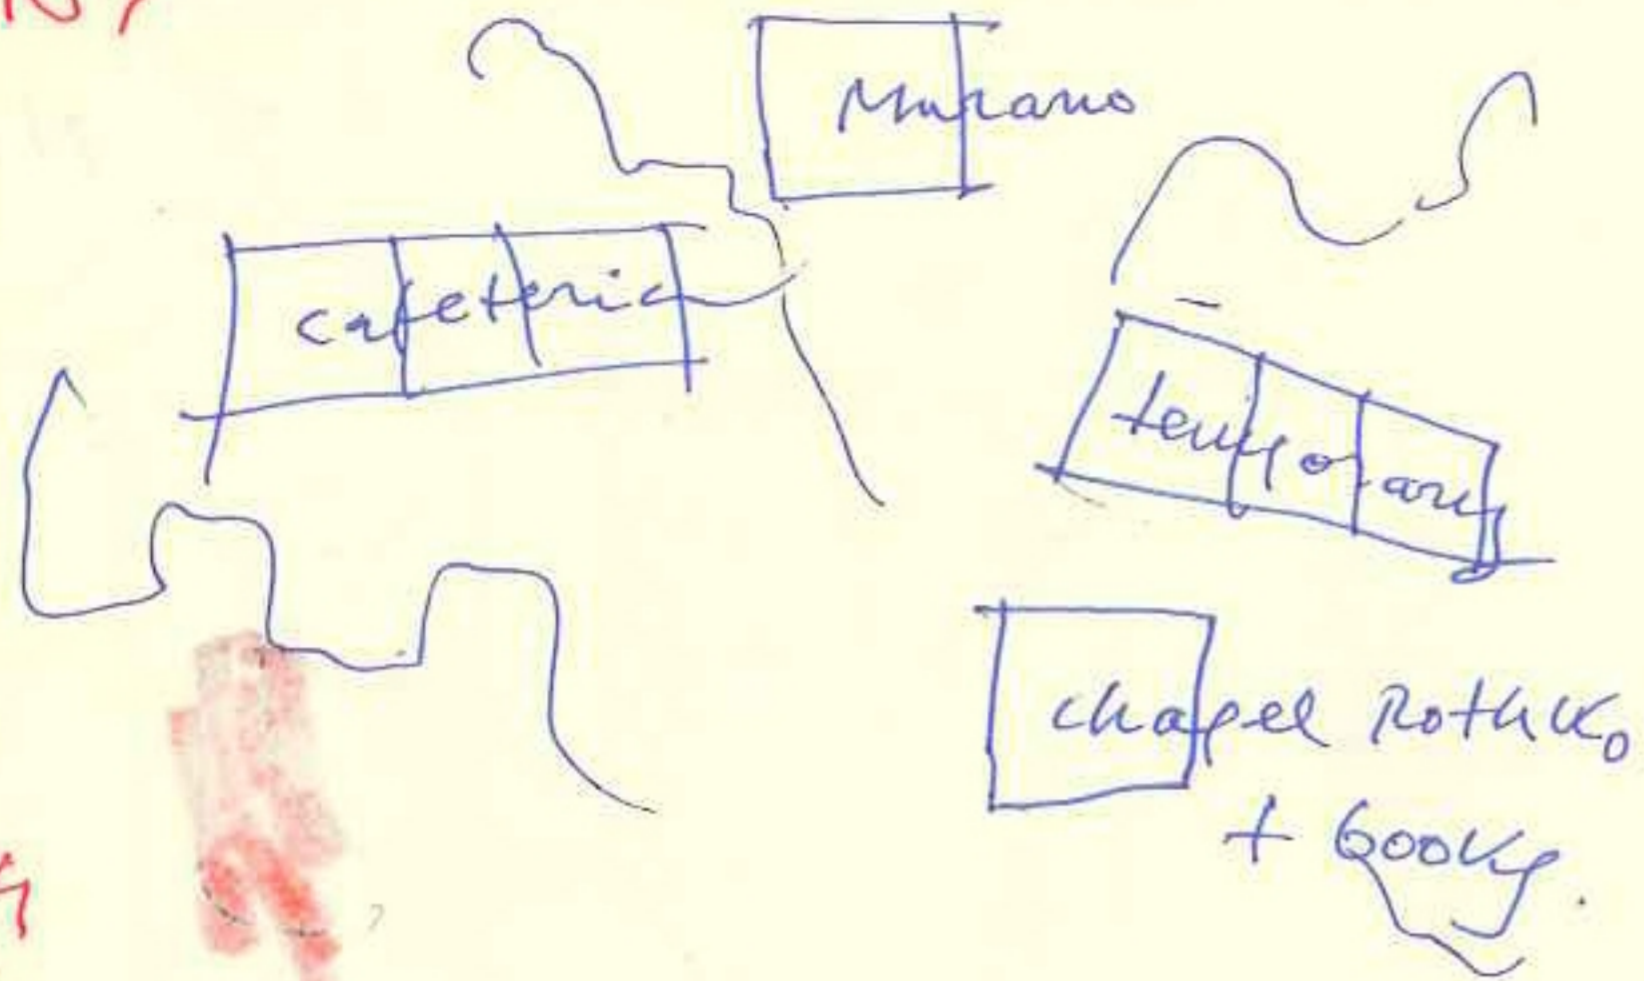 Murano
cafeteria
temporary
chapel Rothko
+ 600Kg